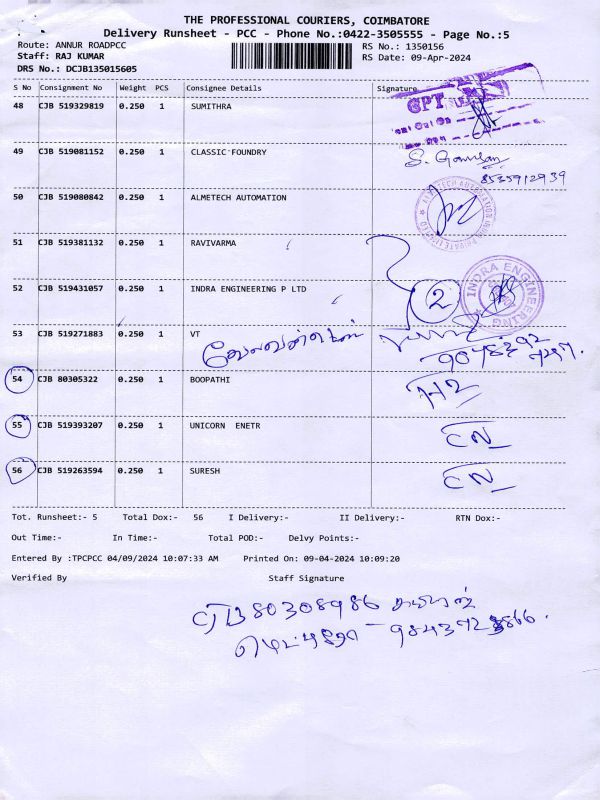 THE PROFESSIONAL COURIERS, COIMBATORE
Delivery Runsheet - PCC - Phone No.:0422-3505555 - Page No.:5
Route: ANNUR ROADPCC
RS No.: 1350156
Staff: RAJ KUMAR
RS Date: 09-Apr-2024
DRS No.: DCJB135015605
S No Consignment No Weight PCS Consignee Details Signature
48 CJB 519329819 0.250 1 SUMITHRA GPT
49 CJB 519081152 0.250 1 CLASSIC FOUNDRY
8535912939
50 CJB 519080842 0.250 1 ALMETECH AUTOMATION
51 CJB 519381132 0.250 1 RAVIVARMA
52 CJB 519431057 0.250 1 INDRA ENGINEERING P LTD 2 INDRA ENGINEERING
53 CJB 519271883 0.250 1 VT
54 CJB 80305322 0.250 1 BOOPATHI
55 CJB 519393207 0.250 1 UNICORN ENETR CN
56 CJB 519263594 0.250 1 SURESH CN
Tot. Runsheet:- 5 Total Dox:- 56 I Delivery:- II Delivery:- RTN Dox:-
Out Time:- In Time:- Total POD:- Delvy Points:-
Entered By :TPCPCC 04/09/2024 10:07:33 AM Printed On: 09-04-2024 10:09:20
Verified By Staff Signature
CJB80308986